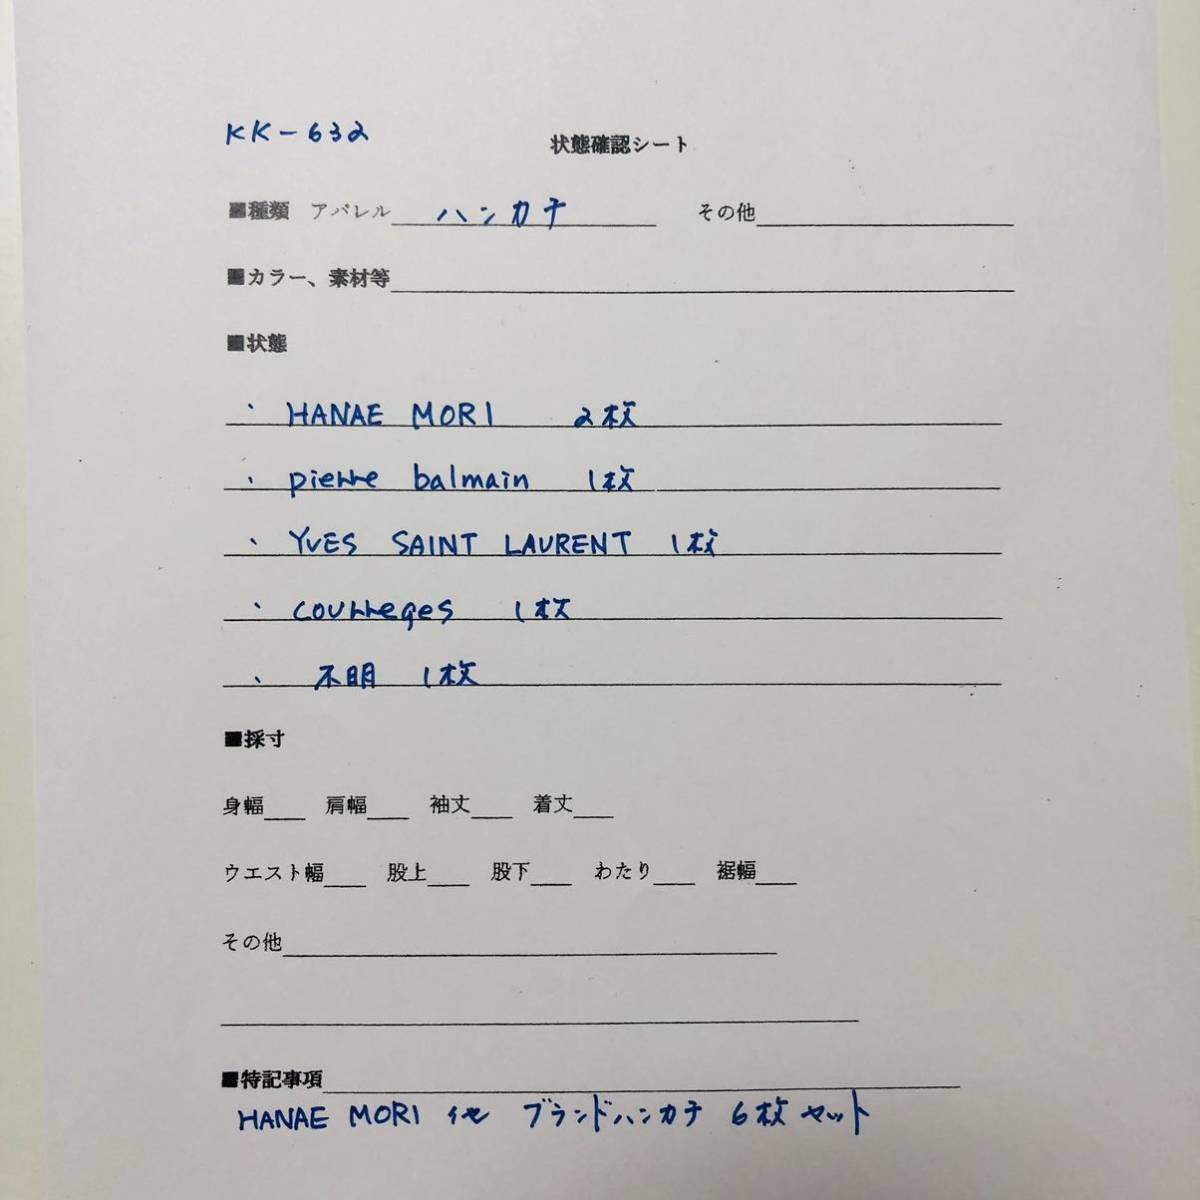 KK-632
状態確認シート
■種類 アパレル ハンカチ その他
■カラー、素材等
■状態
・ HANAE MORI 2枚
・ pierre balmain 1枚
・ YVES SAINT LAURENT 1枚
・ courreges 1枚
・ 不明 1枚
■採寸
身幅 肩幅 袖丈 着丈
ウエスト幅 股上 股下 わたり 裾幅
その他
■特記事項
HANAE MORI 他 ブランドハンカチ 6枚セット